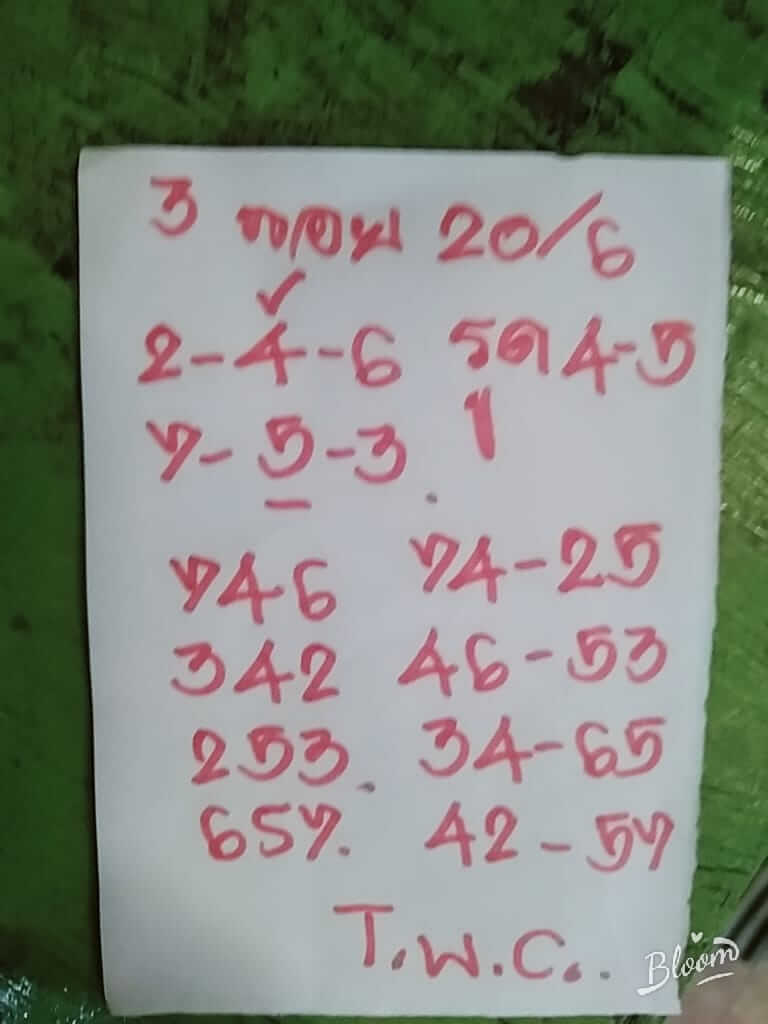 3 ตอน 20/6
2-4-6 รูด 4-5
7-5-3.
746 74-25
342 46-53
253. 34-65
657. 42-57
T.W.C..
Bloom